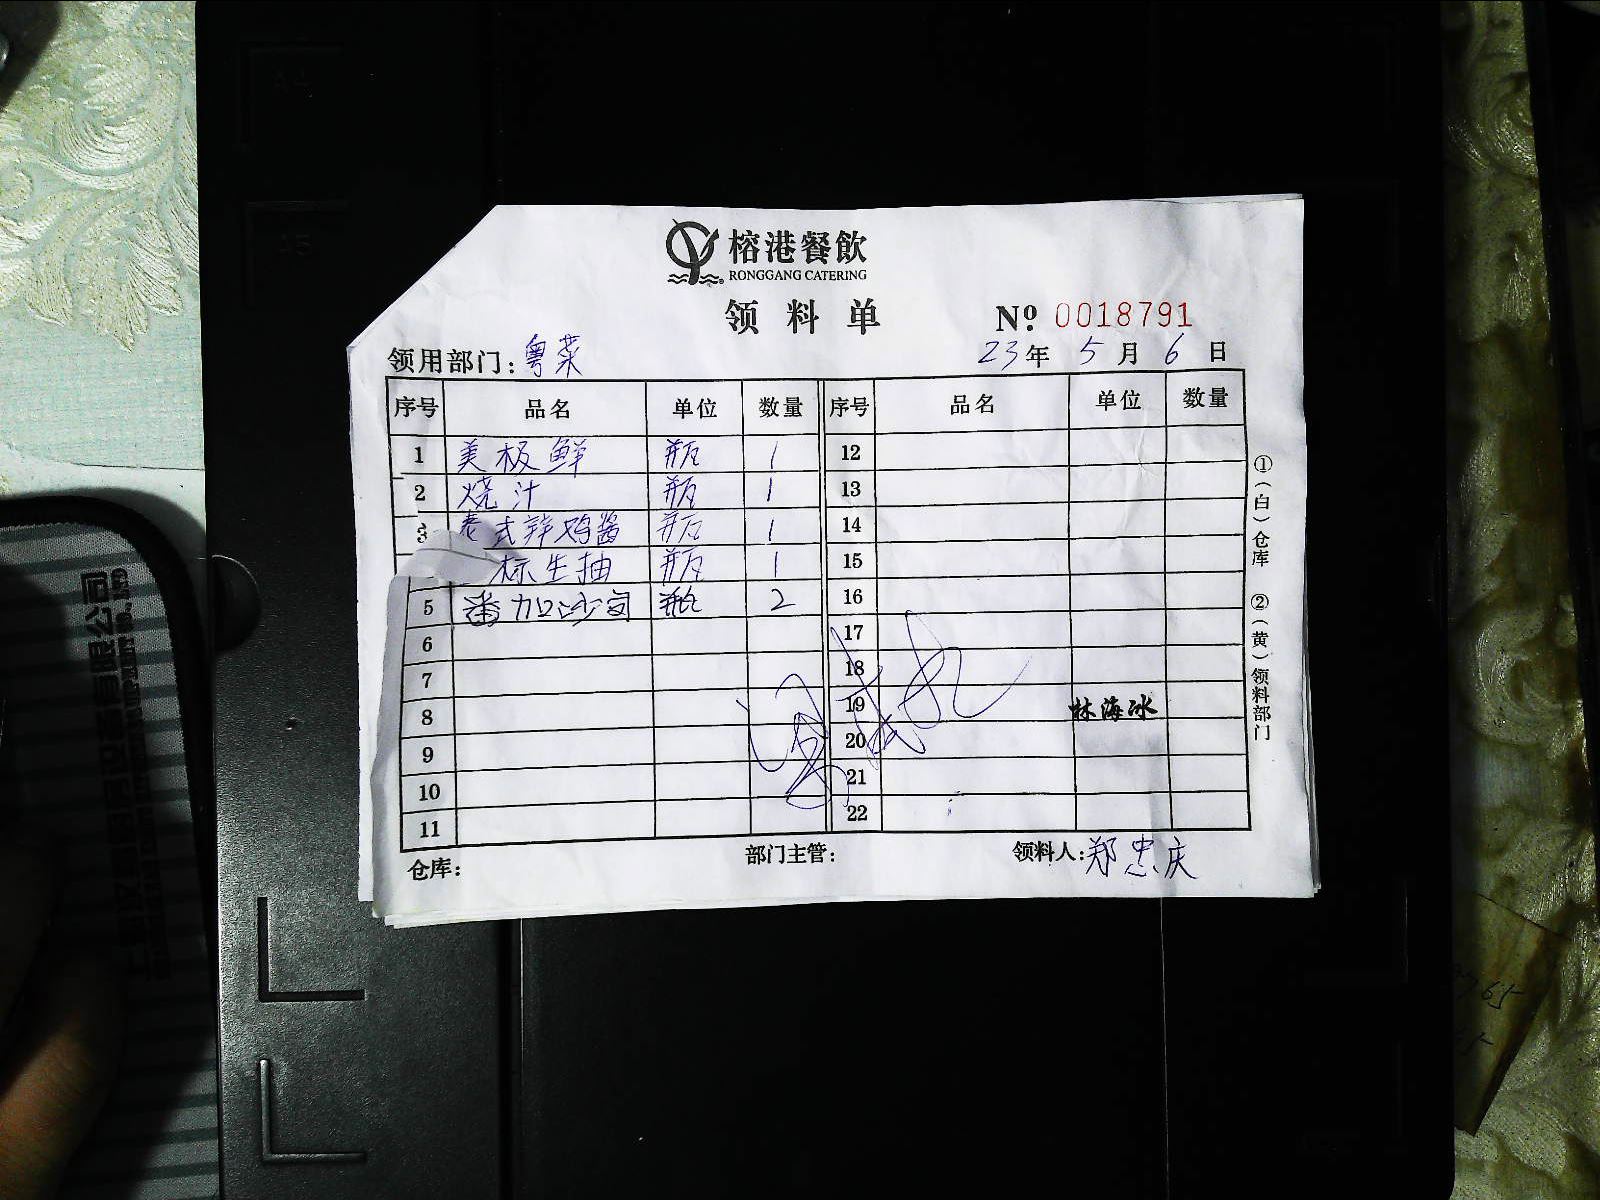 榕港餐飲
RONGGANG CATERING
领料单
Nº 0018791
领用部门:粤菜
23年 5月 6日
序号 品名 单位 数量 序号 品名 单位 数量
1 美极鲜 瓶 1 12
2 烧汁 瓶 1 13
3 泰式拌鸡酱 瓶 1 14
标生抽 瓶 1 15
5 番加沙司 瓶 2 16
6 17
7 18
8 19 林海冰
9 20
10 21
11 22
仓库: 部门主管: 领料人:郑忠庆
①(白)仓库 ②(黄)领料部门
A4
A5